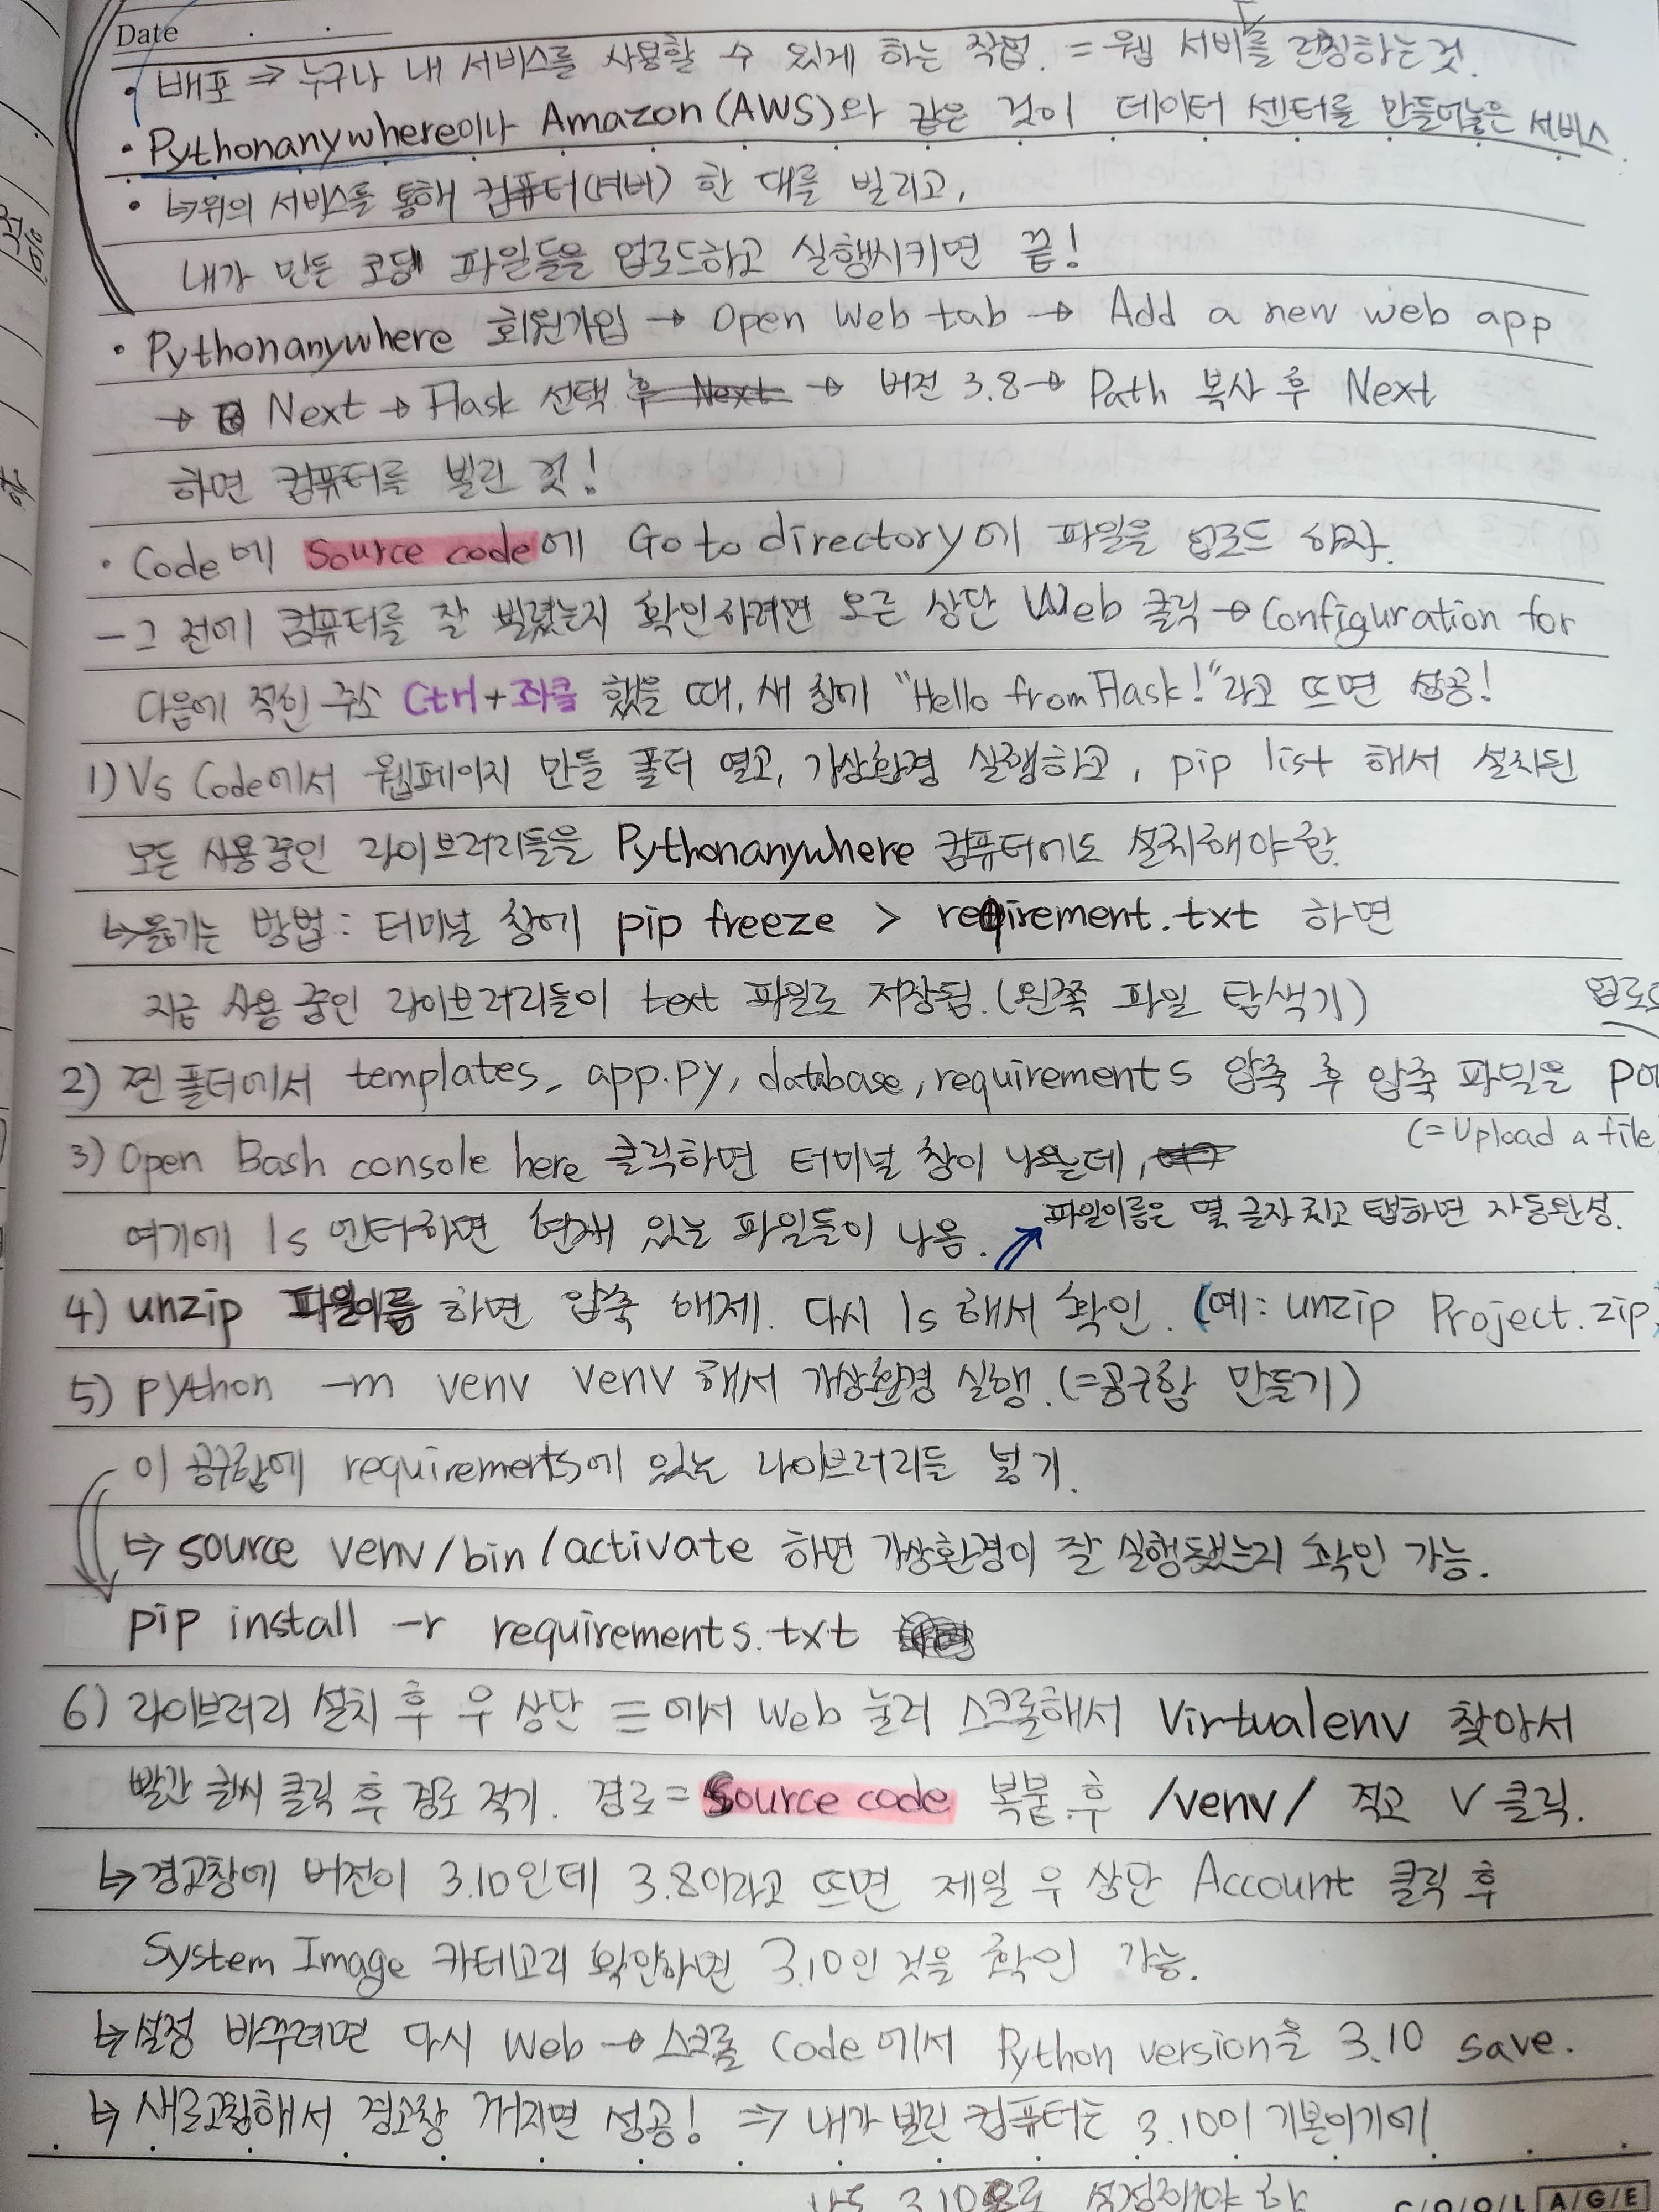 Date
• 배포 ⇒ 누구나 내 서비스를 사용할 수 있게 하는 작업. = 웹 서비를 런칭하는 것.
• Pythonanywhere이나 Amazon(AWS)와 같은 것이 데이터 센터를 만들어놓은 서비스.
• ↳위의 서비스를 통해 컴퓨터(서버) 한 대를 빌리고,
내가 만든 코딩 파일들을 업로드하고 실행시키면 끝!
• Pythonanywhere 회원가입 → Open Web tab → Add a new web app
→ Next → Flask 선택 후 Next → 버전 3.8 → Path 복사 후 Next
하면 컴퓨터를 빌린 것!
• Code에 Source code에 Go to directory에 파일을 업로드 하자.
- 그 전에 컴퓨터를 잘 빌렸는지 확인하려면 오른 상단 Web 클릭 → Configuration for
다음에 적힌 주소 Ctrl+좌클 했을 때, 새 창에 "Hello from Flask!"라고 뜨면 성공!
1) Vs Code에서 웹페이지 만들 폴더 열고, 가상환경 실행하고, pip list 해서 설치된
모든 사용중인 라이브러리들을 Pythonanywhere 컴퓨터에도 설치해야 함.
↳옮기는 방법: 터미널 창에 pip freeze > reqirement.txt 하면
지금 사용 중인 라이브러리들이 text 파일로 저장됨. (왼쪽 파일 탐색기)
업로드
2) 찐 폴더에서 templates, app.py, database, requirements 압축 후 압축 파일을
(=Upload a file
3) Open Bash console here 클릭하면 터미널 창이 나오는데,
여기에 ls 엔터하면 현재 있는 파일들이 나옴. ↗ 파일이름은 몇 글자 치고 탭하면 자동완성.
4) unzip 파일이름 하면 압축 해제. 다시 ls 해서 확인. (예: unzip Project.zip)
5) python -m venv venv 해서 가상환경 실행. (=공구함 만들기)
이 공구함에 requirements에 있는 라이브러리들 넣기.
↳ source venv/bin/activate 하면 가상환경이 잘 실행됐는지 확인 가능.
pip install -r requirements.txt
6) 라이브러리 설치 후 우 상단 ≡에서 Web 눌러 스크롤해서 Virtualenv 찾아서
빨간 글씨 클릭 후 경로 적기. 경로 = Source code 복붙 후 /venv/ 적고 V 클릭.
↳ 경고창에 버전이 3.10인데 3.8이라고 뜨면 제일 우 상단 Account 클릭 후
System Image 카테고리 확인하면 3.10인 것을 확인 가능.
↳ 설정 바꾸려면 다시 Web → 스크롤 Code에서 Python version을 3.10 save.
↳ 새로고침해서 경고창 꺼지면 성공! ⇒ 내가 빌린 컴퓨터는 3.10이 기본이기에
3.10으로 설정해야 함
COOL AGE